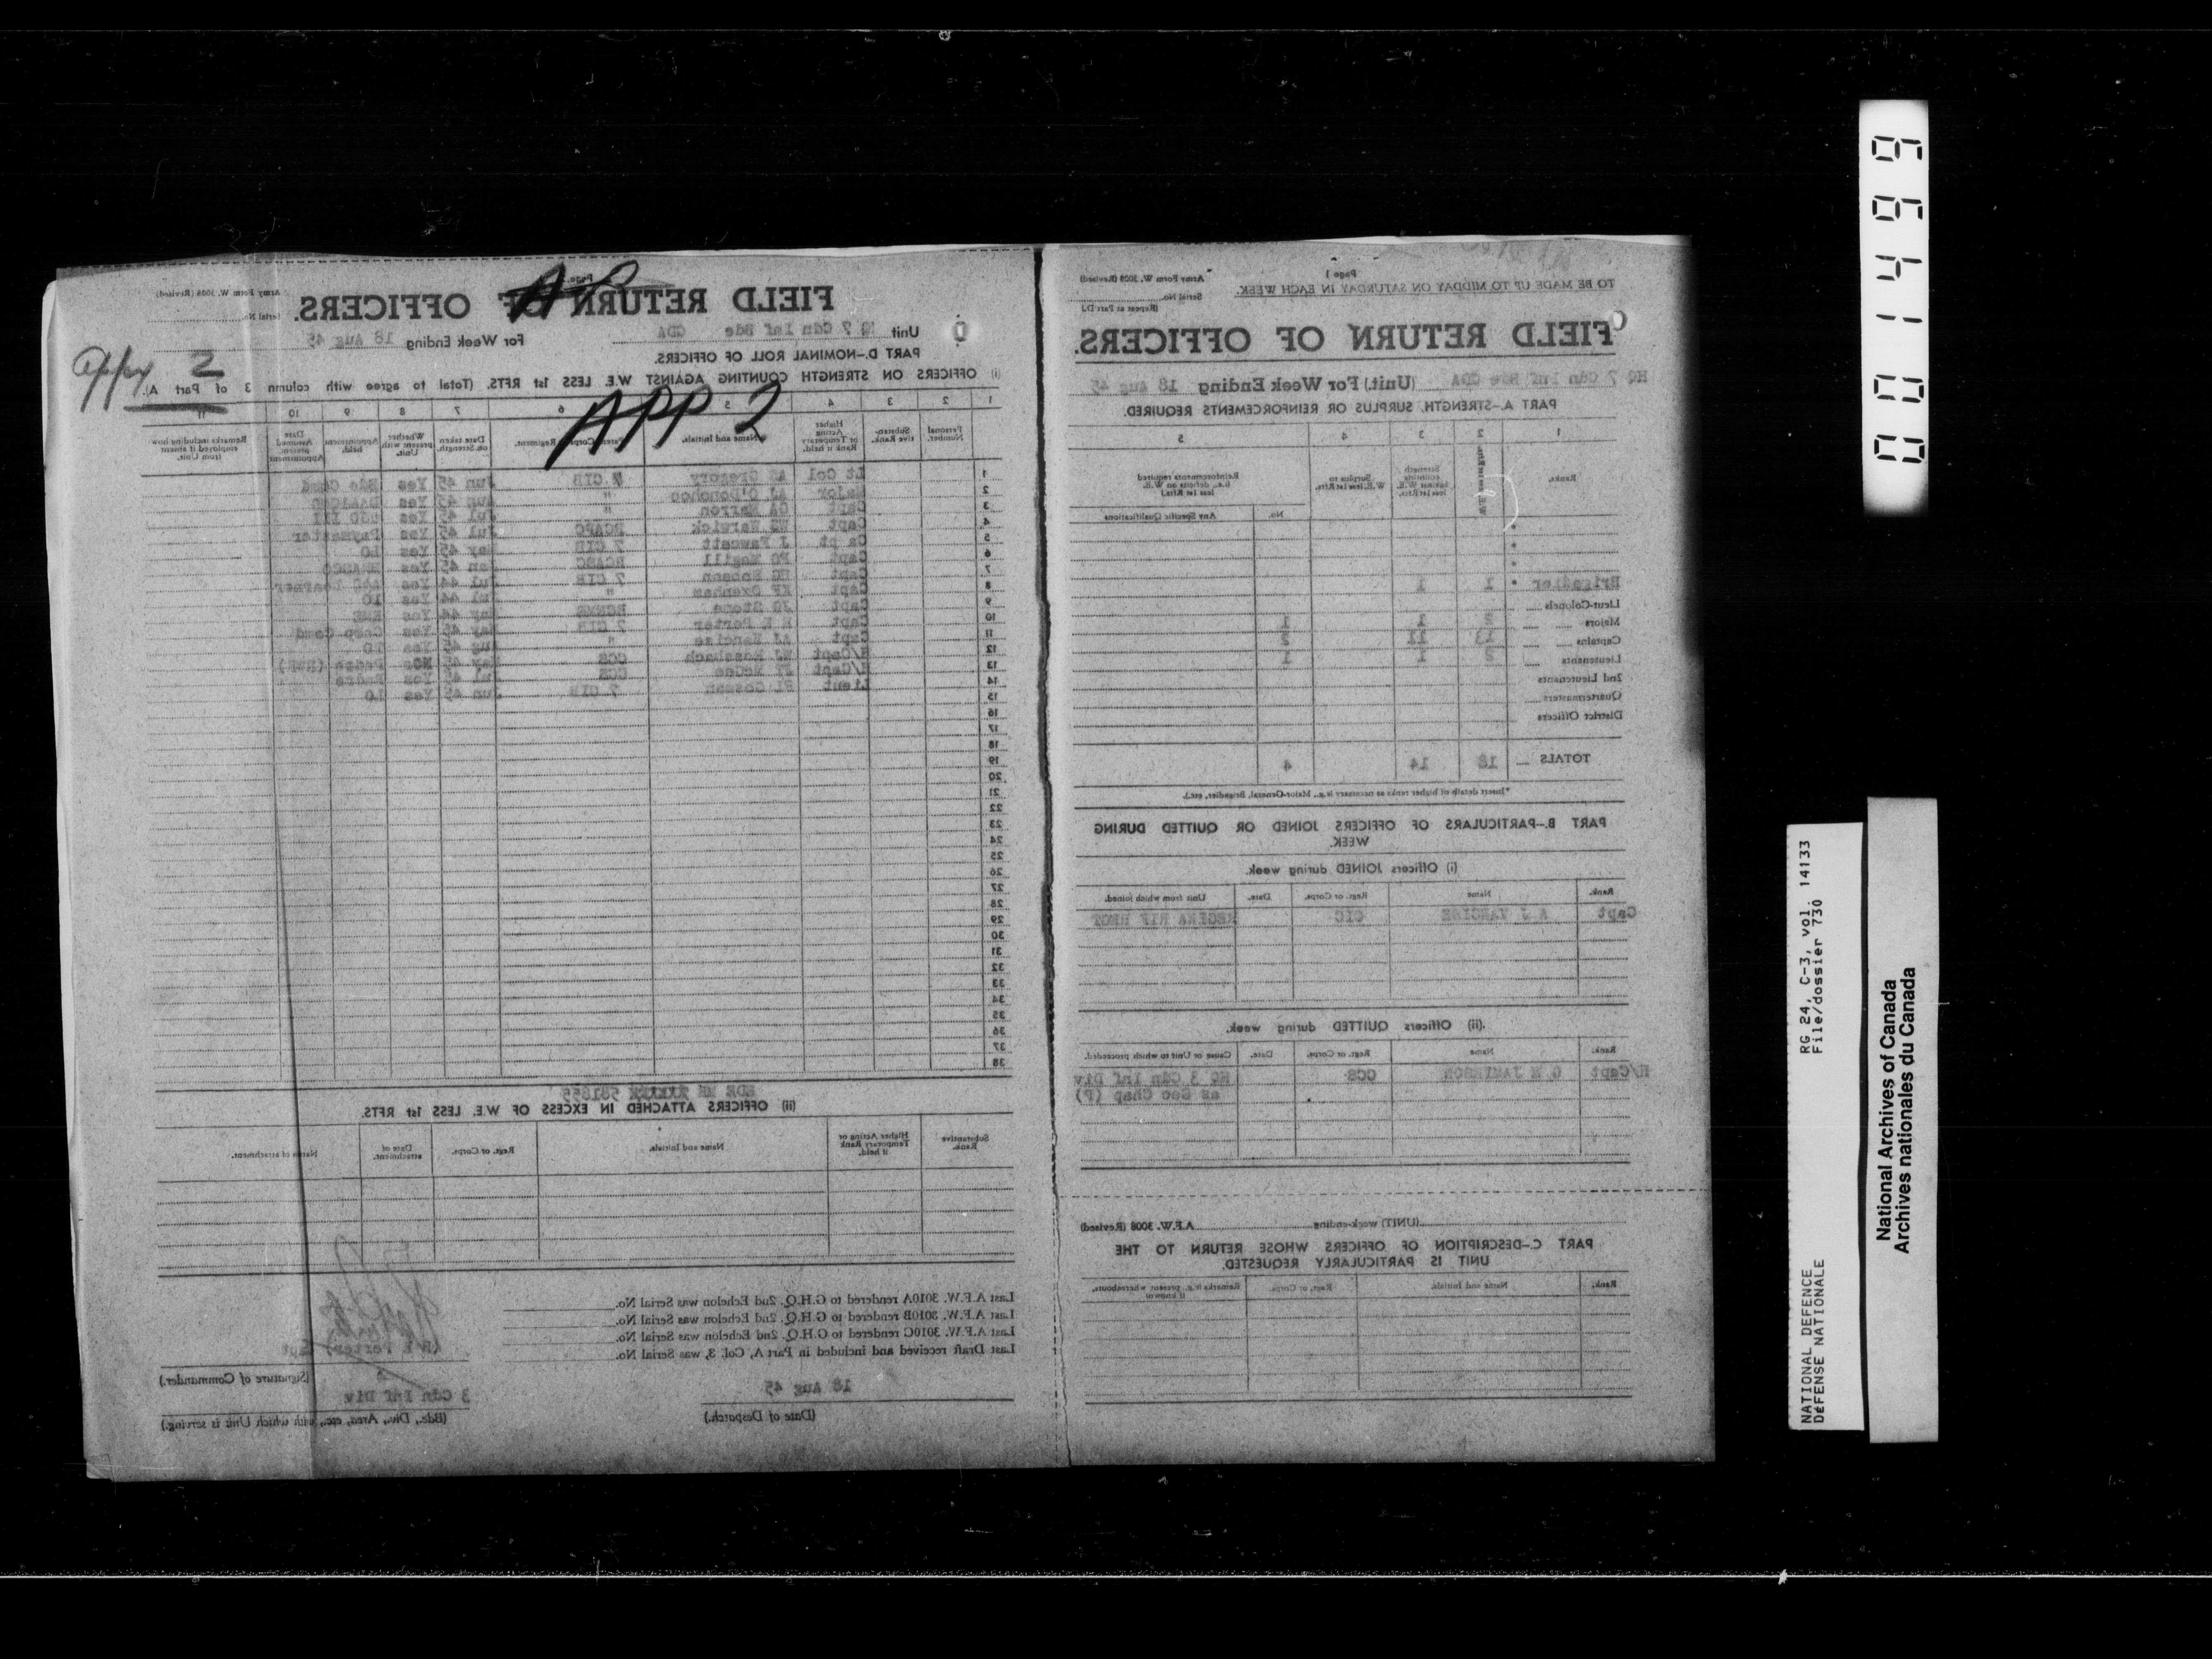 TO BE MADE UP TO MIDDAY ON SATURDAY IN EACH WEEK.
(Page )
Army Form W. 3008 (Revised)
Serial No.
(Repeat at Part D.)
FIELD RETURN OF OFFICERS.
HQ 7 Cdn Inf Bde CDA (Unit.) For Week Ending 18 Aug 45
PART A.—STRENGTH, SURPLUS OR REINFORCEMENTS REQUIRED.
1 2 3 4 5
Ranks.
Strength counting against W.E. less 1st Rfts.
Surplus to W.E. less 1st Rfts.
Reinforcements required (i.e., deficits on W.E. less 1st Rfts.)
No.
Any Specific Qualifications
Brigadier * 1 1
Lieut-Colonels
Majors 2 1 1
Captains 13 11 2
Lieutenants 2 1 1
2nd Lieutenants
Quartermasters
District Officers
TOTALS 18 14 4
*Insert details of higher ranks as necessary (e.g., Major-General, Brigadier, etc.).
PART B.—PARTICULARS OF OFFICERS JOINED OR QUITTED DURING WEEK.
(i) Officers JOINED during week.
Rank. Name Regt. or Corps. Date. Unit from which joined.
Capt A J VANCISE CIC REGINA RIF RHQT
(ii) Officers QUITTED during week.
Rank. Name Regt. or Corps. Date. Cause or Unit to which proceeded.
H/Capt G M JAMIESON CCS HQ 3 Cdn Inf Div
as Sec Chap (P)
(UNIT) week-ending A.F.W. 3008 (Revised)
PART C.—DESCRIPTION OF OFFICERS WHOSE RETURN TO THE
UNIT IS PARTICULARLY REQUESTED.
Rank. Name and Initials. Regt. or Corps. Remarks (e.g., present whereabouts, if known)
Page
Army Form W. 3008 (Revised)
Serial No.
FIELD RETURN OF OFFICERS.
Unit HQ 7 Cdn Inf Bde CDA For Week Ending 18 Aug 45
PART D.—NOMINAL ROLL OF OFFICERS.
(i) OFFICERS ON STRENGTH COUNTING AGAINST W.E. LESS 1st RFTS. (Total to agree with column 3 of Part A).
APP 2
2
1 2 3 4 5 6 7 8 9 10 11
Personal Number.
Substantive Rank.
Higher Acting or Temporary Rank if held.
Name and Initials.
Parent Corps Regiment.
Date taken on Strength.
Whether present with Unit.
Appointment held.
Date Assumed present Appointment
Remarks including how employed if absent from Unit.
1 Lt Col AS Gregory 7 CIB Jun 45 Yes Bde Comd
2 Major AJ O'Donohoe " Jun 45 Yes DAA&QMG
3 Capt " Jul 45 Yes GSO III
4 Capt WS Warwick RCAPC Jul 45 Yes Paymaster
5 Capt J Fawcett 7 CIB May 45 Yes LO
6 Capt Magill RCASC Jan 45 Yes BRASCO
7 Capt Robson 7 CIB Jul 44 Yes Learner
8 Capt Oxenham " Jul 44 Yes LO
9 Capt JG Stone RCEME May 44 Yes EME
10 Capt H E Porter 7 CIB May 45 Yes Camp Comd
11 Capt AJ Vancise " Aug 45 Yes LO
12 H/Capt WJ Rossbach CCS May 45 Padre
13 H/Capt McGee CCS Jul 45 Yes Padre
14 Lieut Gosman 7 CIB Jun 45 Yes LO
15
16
17
18
19
20
21
22
23
24
25
26
27
28
29
30
31
32
33
34
35
36
37
38
(ii) OFFICERS ATTACHED IN EXCESS OF W.E. LESS 1st RFTS.
Substantive Rank. Higher Acting or Temporary Rank if held. Name and Initials. Regt. or Corps. Date of attachment. Name of attachment.
Last A.F.W. 3010A rendered to G.H.Q. 2nd Echelon was Serial No.
Last A.F.W. 3010B rendered to G.H.Q. 2nd Echelon was Serial No.
Last A.F.W. 3010C rendered to G.H.Q. 2nd Echelon was Serial No.
Last Draft received and included in Part A, Col. 3, was Serial No.
(H E Porter) Capt
(Signature of Commander.)
18 Aug 45
(Date of Despatch.)
3 Cdn Inf Div
(Bde., Div., Area, etc., with which Unit is serving.)
001499
NATIONAL DEFENCE RG 24, C-3, vol. 14133
DÉFENSE NATIONALE File/dossier 730
National Archives of Canada
Archives nationales du Canada